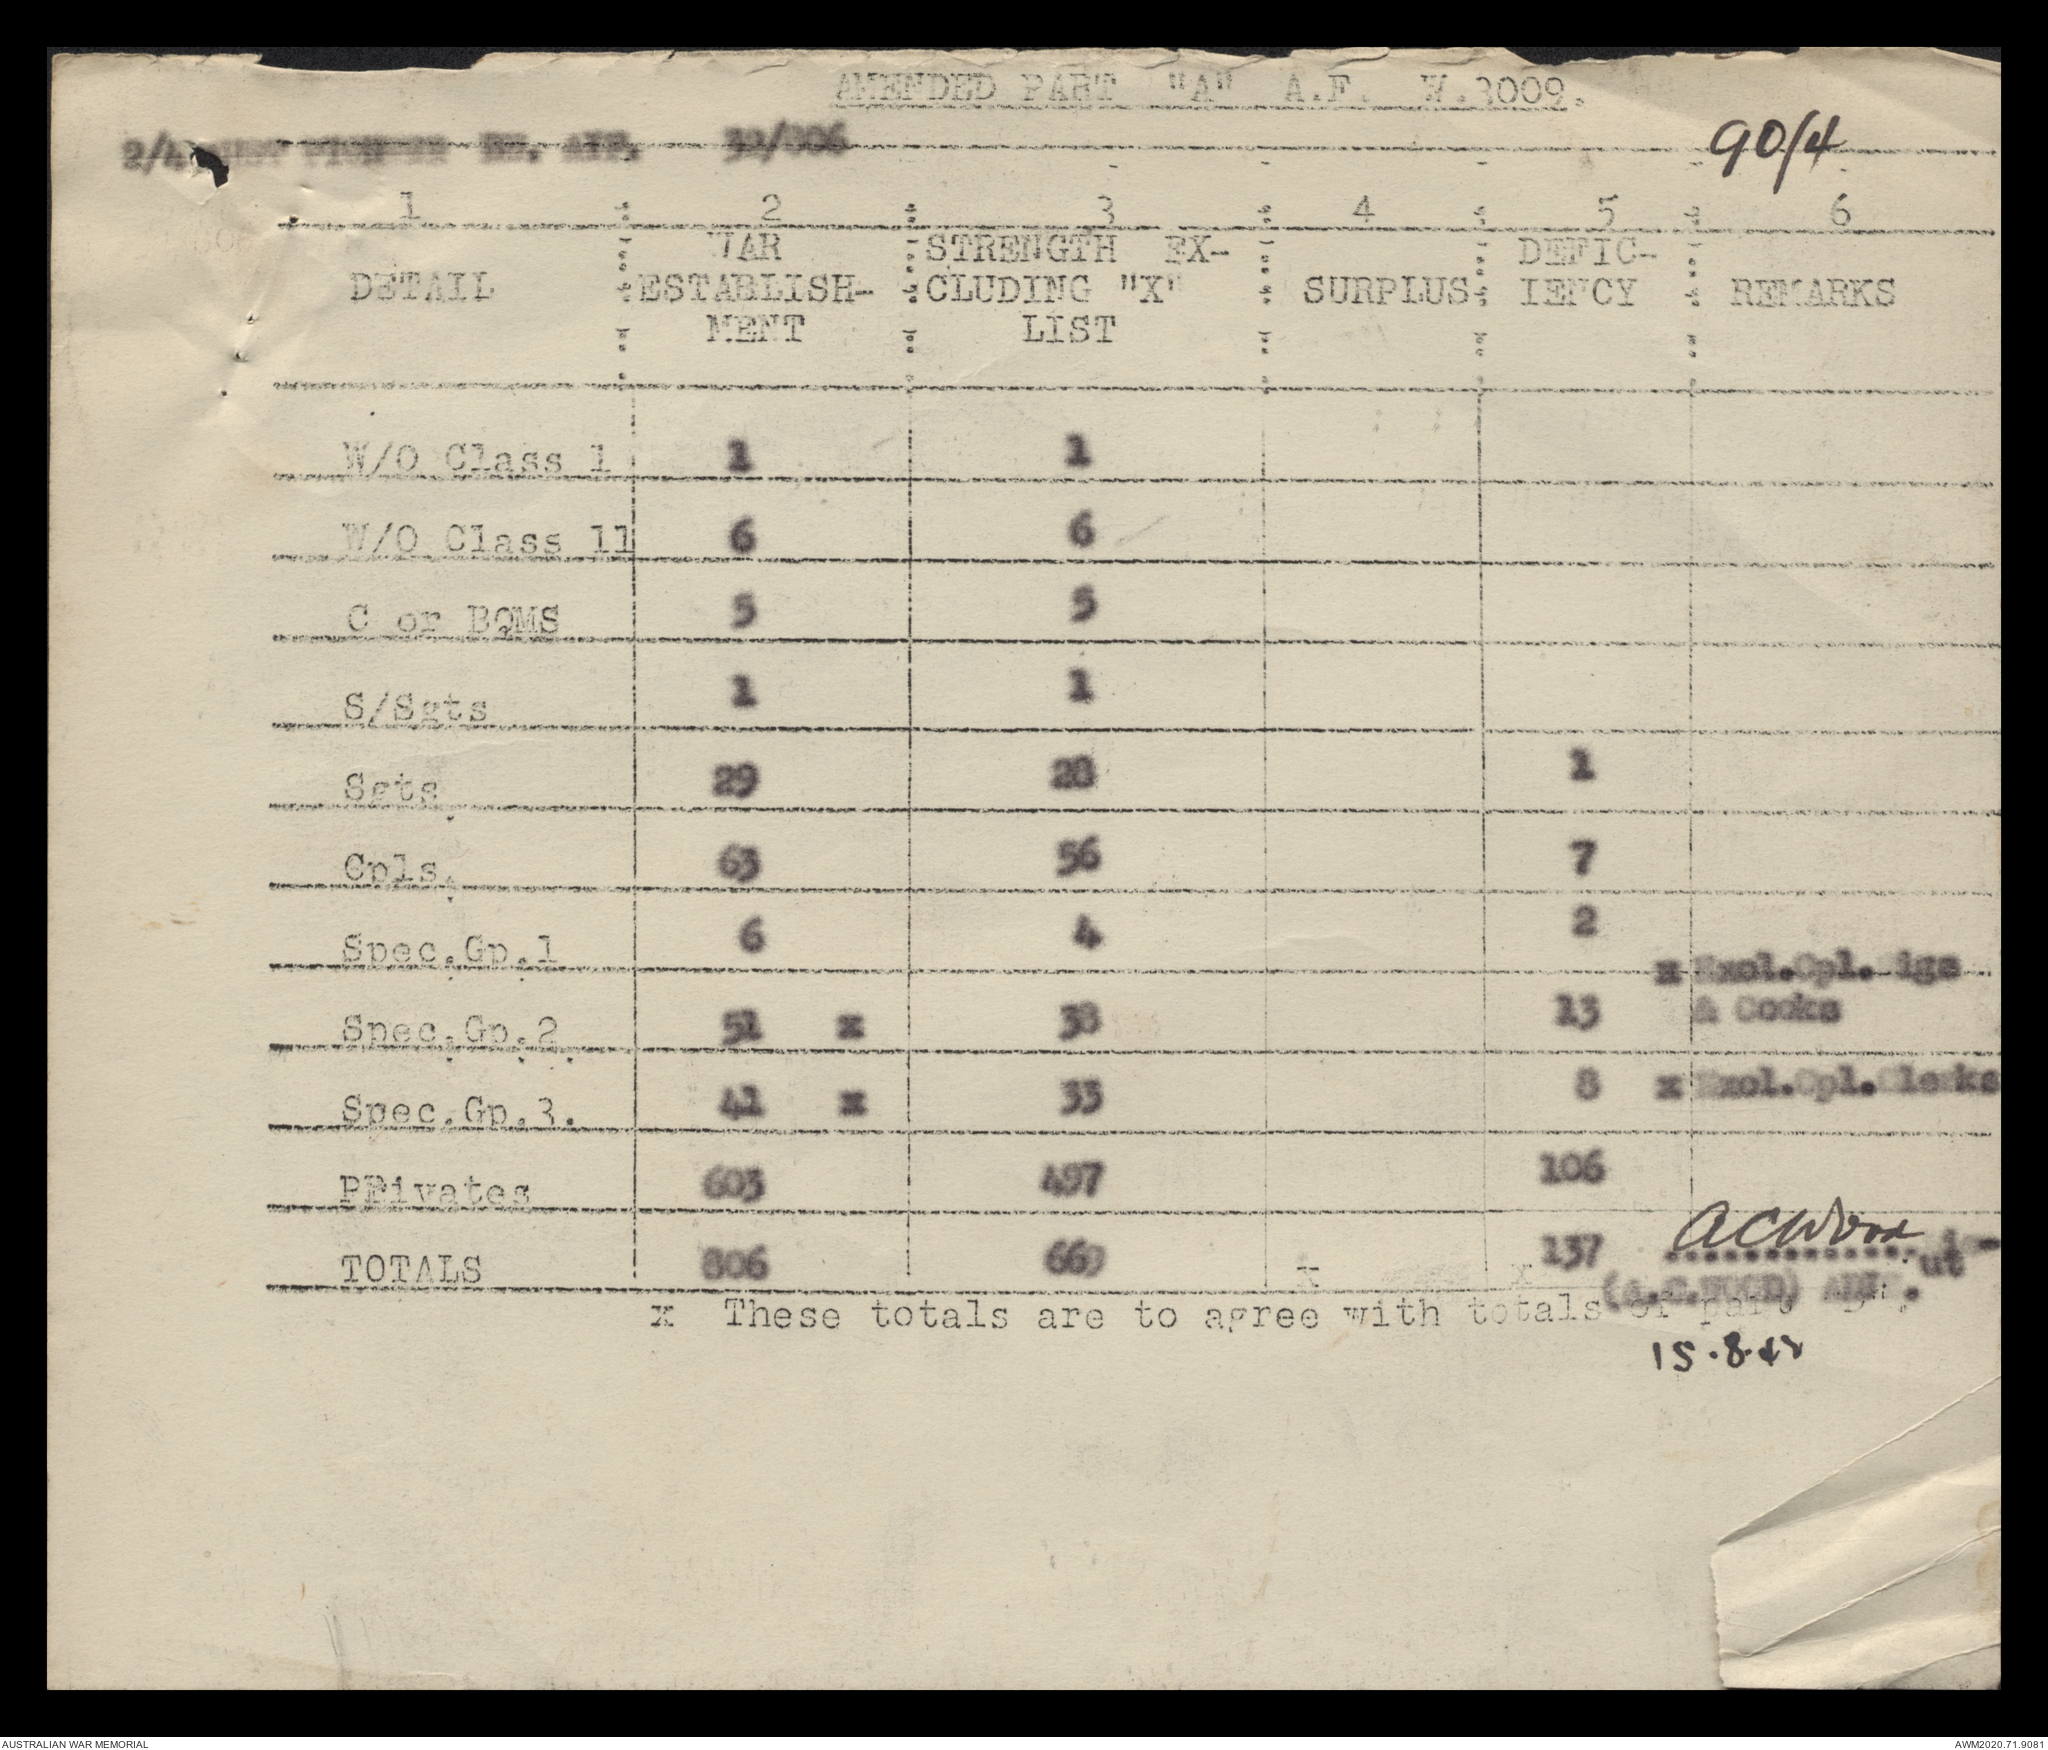 AMENDED PART "A" A.F. W.3009.
2/4 PIONEER BN. AIF. 32/806
90/4
1 2 3 4 5 6
DETAIL WAR ESTABLISH- MENT STRENGTH EX- CLUDING "X" LIST SURPLUS DEFIC- IENCY REMARKS
W/O Class 1 1 1
W/O Class 11 6 6
C or BQMS 5 5
S/Sgts 1 1
Sgts. 29 28 1
Cpls. 63 56 7
Spec.Gp.1 6 4 2
Spec.Gp.2. 51 x 38 13 x Excl.Cpl.Sigs & Cooks
Spec.Gp.3. 41 x 33 8 x Excl.Cpl.Clerks
PRivates 603 497 106
TOTALS 806 669 x x 137
ACWood
(A.C.WOOD)
x These totals are to agree with totals of part "B".
15.8.42
AUSTRALIAN WAR MEMORIAL
AWM2020.71.9081